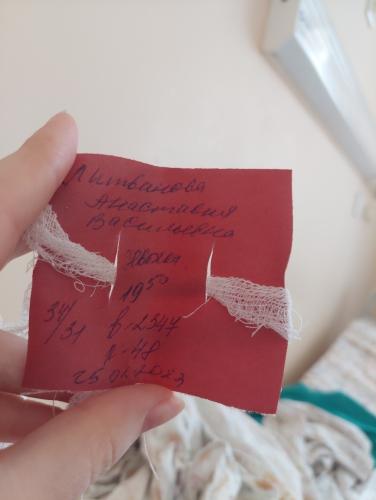 Литванова
Анастасия
Васильевна
19⁵⁰
34/31 в-2347
р-48
25.02.2023